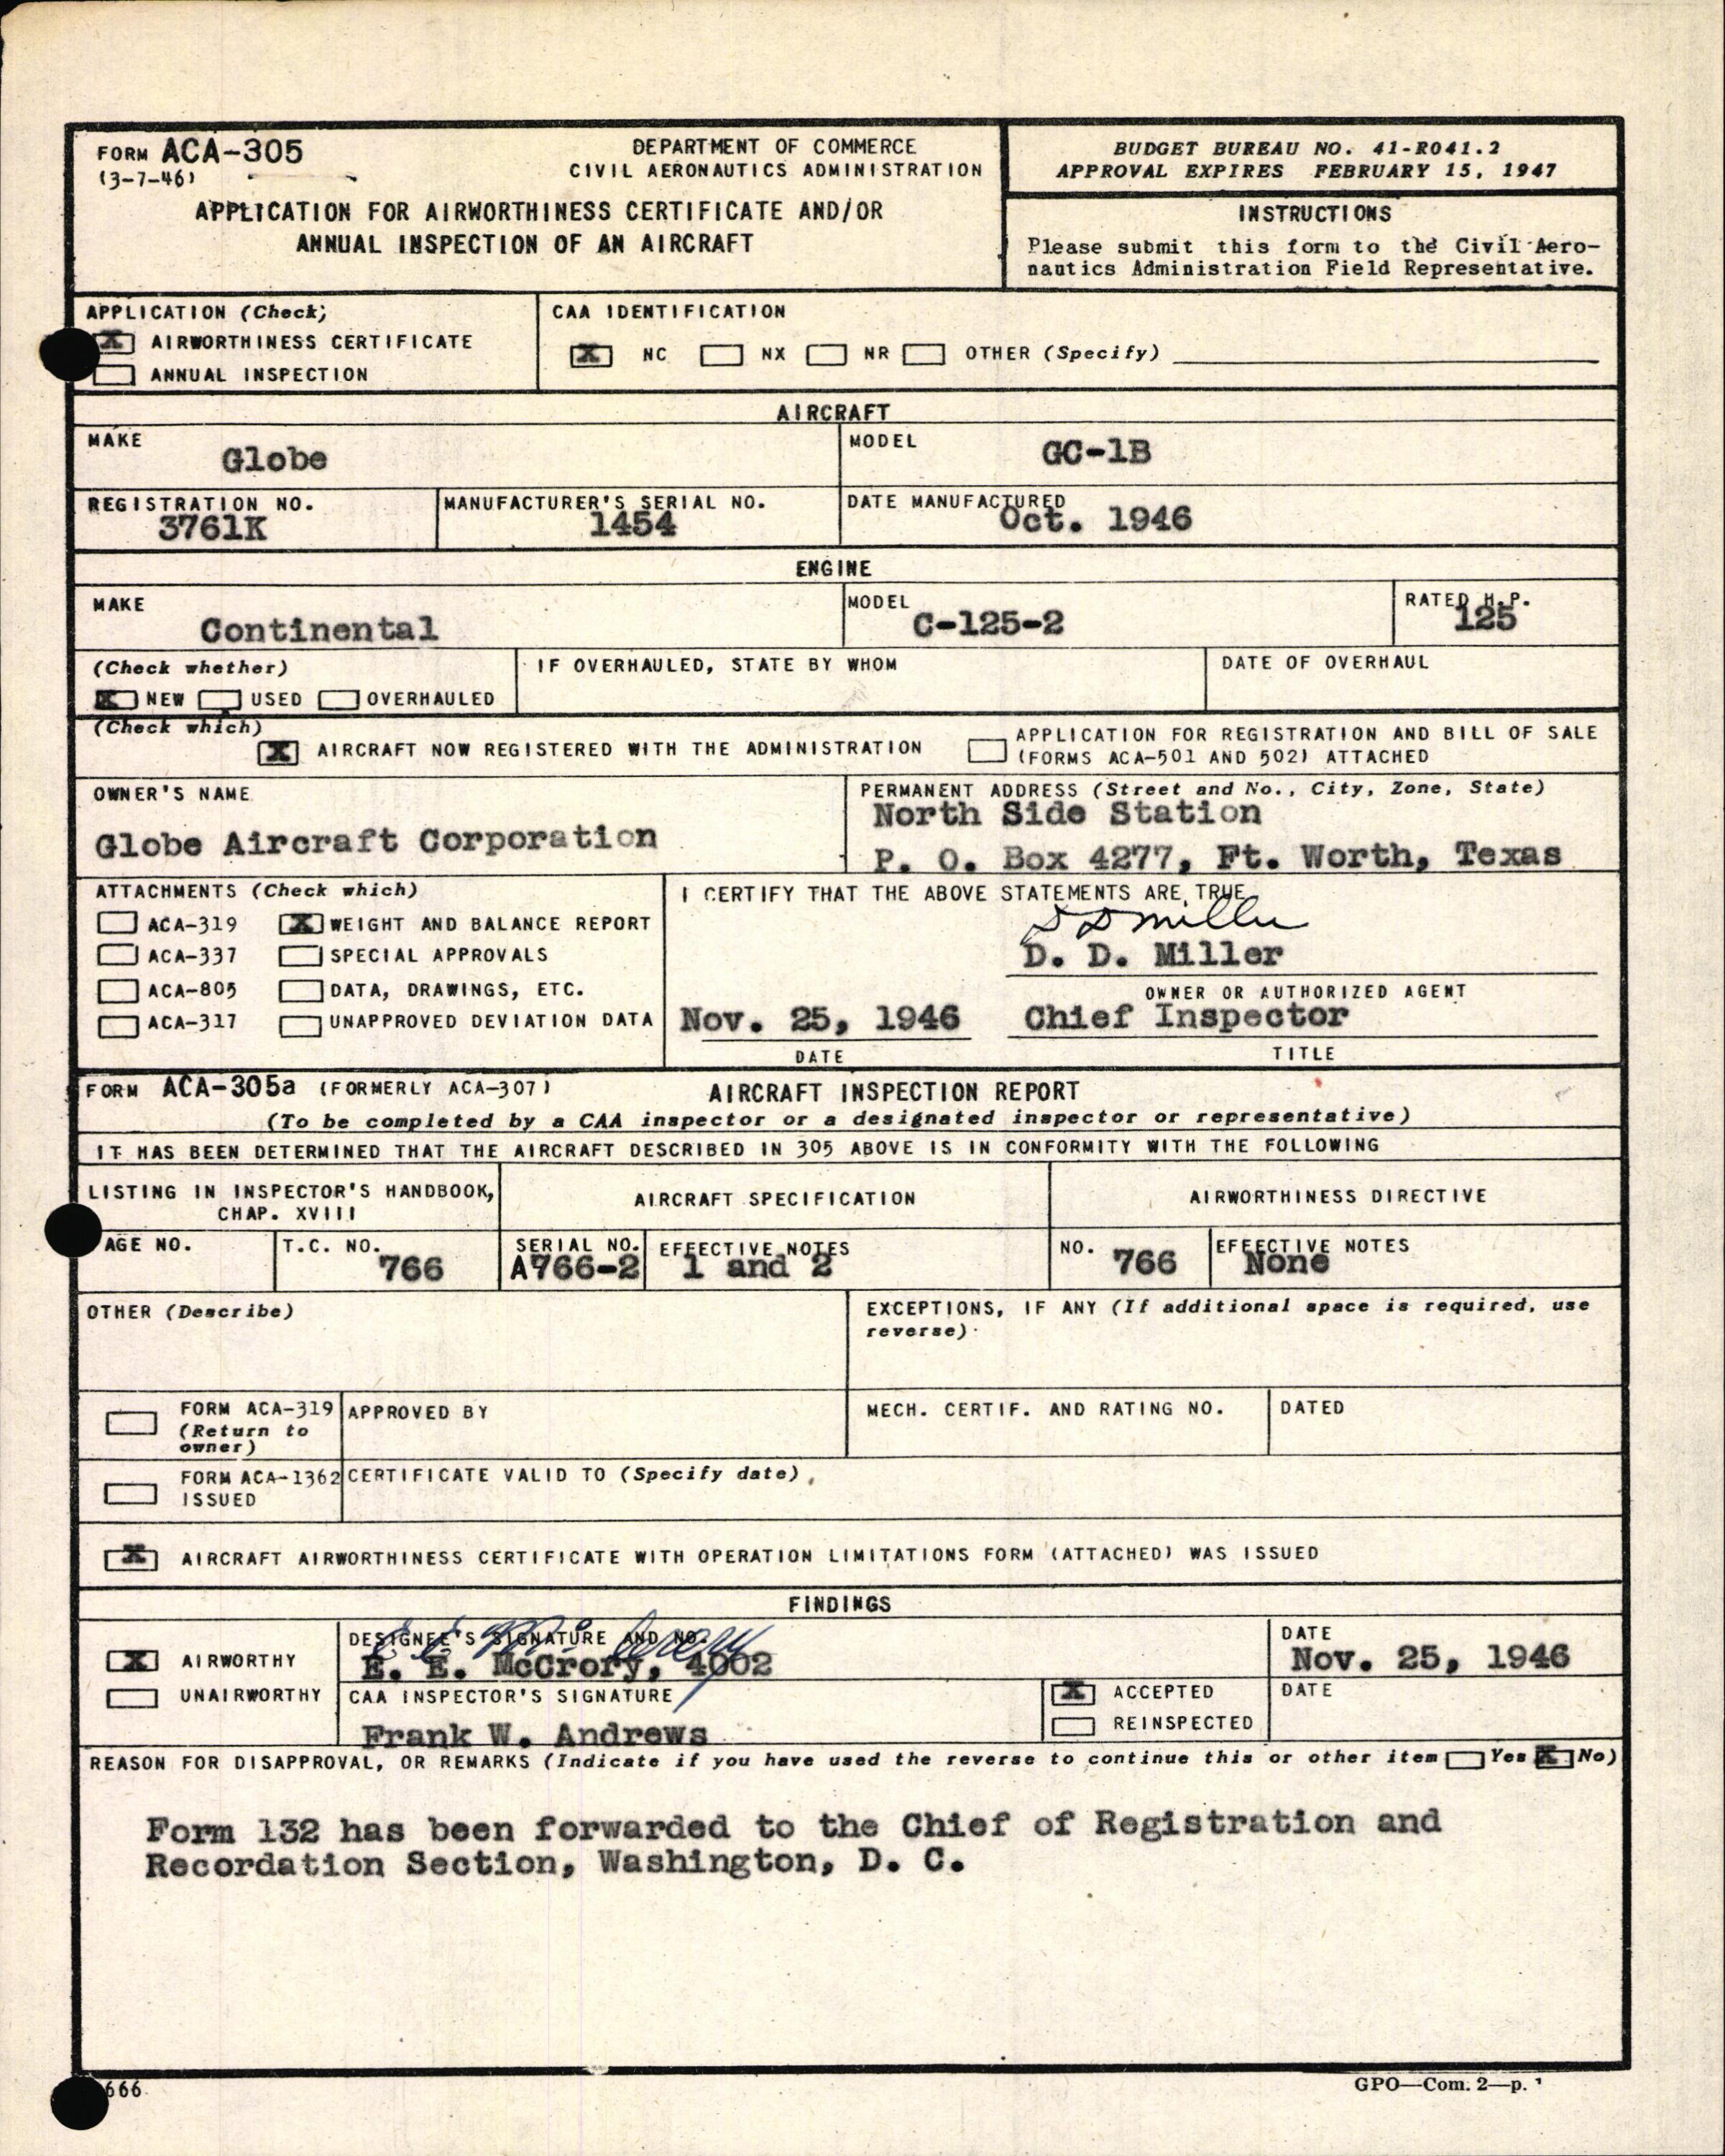 FORM ACA-305
(3-7-46)
DEPARTMENT OF COMMERCE
CIVIL AERONAUTICS ADMINISTRATION
APPLICATION FOR AIRWORTHINESS CERTIFICATE AND/OR
ANNUAL INSPECTION OF AN AIRCRAFT
BUDGET BUREAU NO. 41-R041.2
APPROVAL EXPIRES FEBRUARY 15, 1947
INSTRUCTIONS
Please submit this form to the Civil Aero-
nautics Administration Field Representative.
APPLICATION (Check)
X AIRWORTHINESS CERTIFICATE
ANNUAL INSPECTION
CAA IDENTIFICATION
X NC NX NR OTHER (Specify)
AIRCRAFT
MAKE
Globe
MODEL
GC-1B
REGISTRATION NO.
3761K
MANUFACTURER'S SERIAL NO.
1454
DATE MANUFACTURED
Oct. 1946
ENGINE
MAKE
Continental
MODEL
C-125-2
RATED H.P.
125
(Check whether)
X NEW USED OVERHAULED
IF OVERHAULED, STATE BY WHOM
DATE OF OVERHAUL
(Check which)
X AIRCRAFT NOW REGISTERED WITH THE ADMINISTRATION
APPLICATION FOR REGISTRATION AND BILL OF SALE
(FORMS ACA-501 AND 502) ATTACHED
OWNER'S NAME
Globe Aircraft Corporation
PERMANENT ADDRESS (Street and No., City, Zone, State)
North Side Station
P. O. Box 4277, Ft. Worth, Texas
ATTACHMENTS (Check which)
ACA-319 X WEIGHT AND BALANCE REPORT
ACA-337 SPECIAL APPROVALS
ACA-805 DATA, DRAWINGS, ETC.
ACA-317 UNAPPROVED DEVIATION DATA
I CERTIFY THAT THE ABOVE STATEMENTS ARE TRUE
D D Miller
D. D. Miller
OWNER OR AUTHORIZED AGENT
Nov. 25, 1946 Chief Inspector
DATE TITLE
FORM ACA-305a (FORMERLY ACA-307) AIRCRAFT INSPECTION REPORT
(To be completed by a CAA inspector or a designated inspector or representative)
IT HAS BEEN DETERMINED THAT THE AIRCRAFT DESCRIBED IN 305 ABOVE IS IN CONFORMITY WITH THE FOLLOWING
LISTING IN INSPECTOR'S HANDBOOK,
CHAP. XVIII
AIRCRAFT SPECIFICATION
AIRWORTHINESS DIRECTIVE
AGE NO.
T.C. NO.
766
SERIAL NO.
A766-2
EFFECTIVE NOTES
1 and 2
NO. 766
EFFECTIVE NOTES
None
OTHER (Describe)
EXCEPTIONS, IF ANY (If additional space is required, use
reverse)
FORM ACA-319
(Return to
owner)
APPROVED BY
MECH. CERTIF. AND RATING NO.
DATED
FORM ACA-1362
ISSUED
CERTIFICATE VALID TO (Specify date)
X AIRCRAFT AIRWORTHINESS CERTIFICATE WITH OPERATION LIMITATIONS FORM (ATTACHED) WAS ISSUED
FINDINGS
X AIRWORTHY
UNAIRWORTHY
DESIGNEE'S SIGNATURE AND NO.
E E McCrory
E. E. McCrory, 4002
DATE
Nov. 25, 1946
CAA INSPECTOR'S SIGNATURE
Frank W. Andrews
X ACCEPTED
REINSPECTED
DATE
REASON FOR DISAPPROVAL, OR REMARKS (Indicate if you have used the reverse to continue this or other item Yes X No)
Form 132 has been forwarded to the Chief of Registration and
Recordation Section, Washington, D. C.
666
GPO—Com. 2—p.